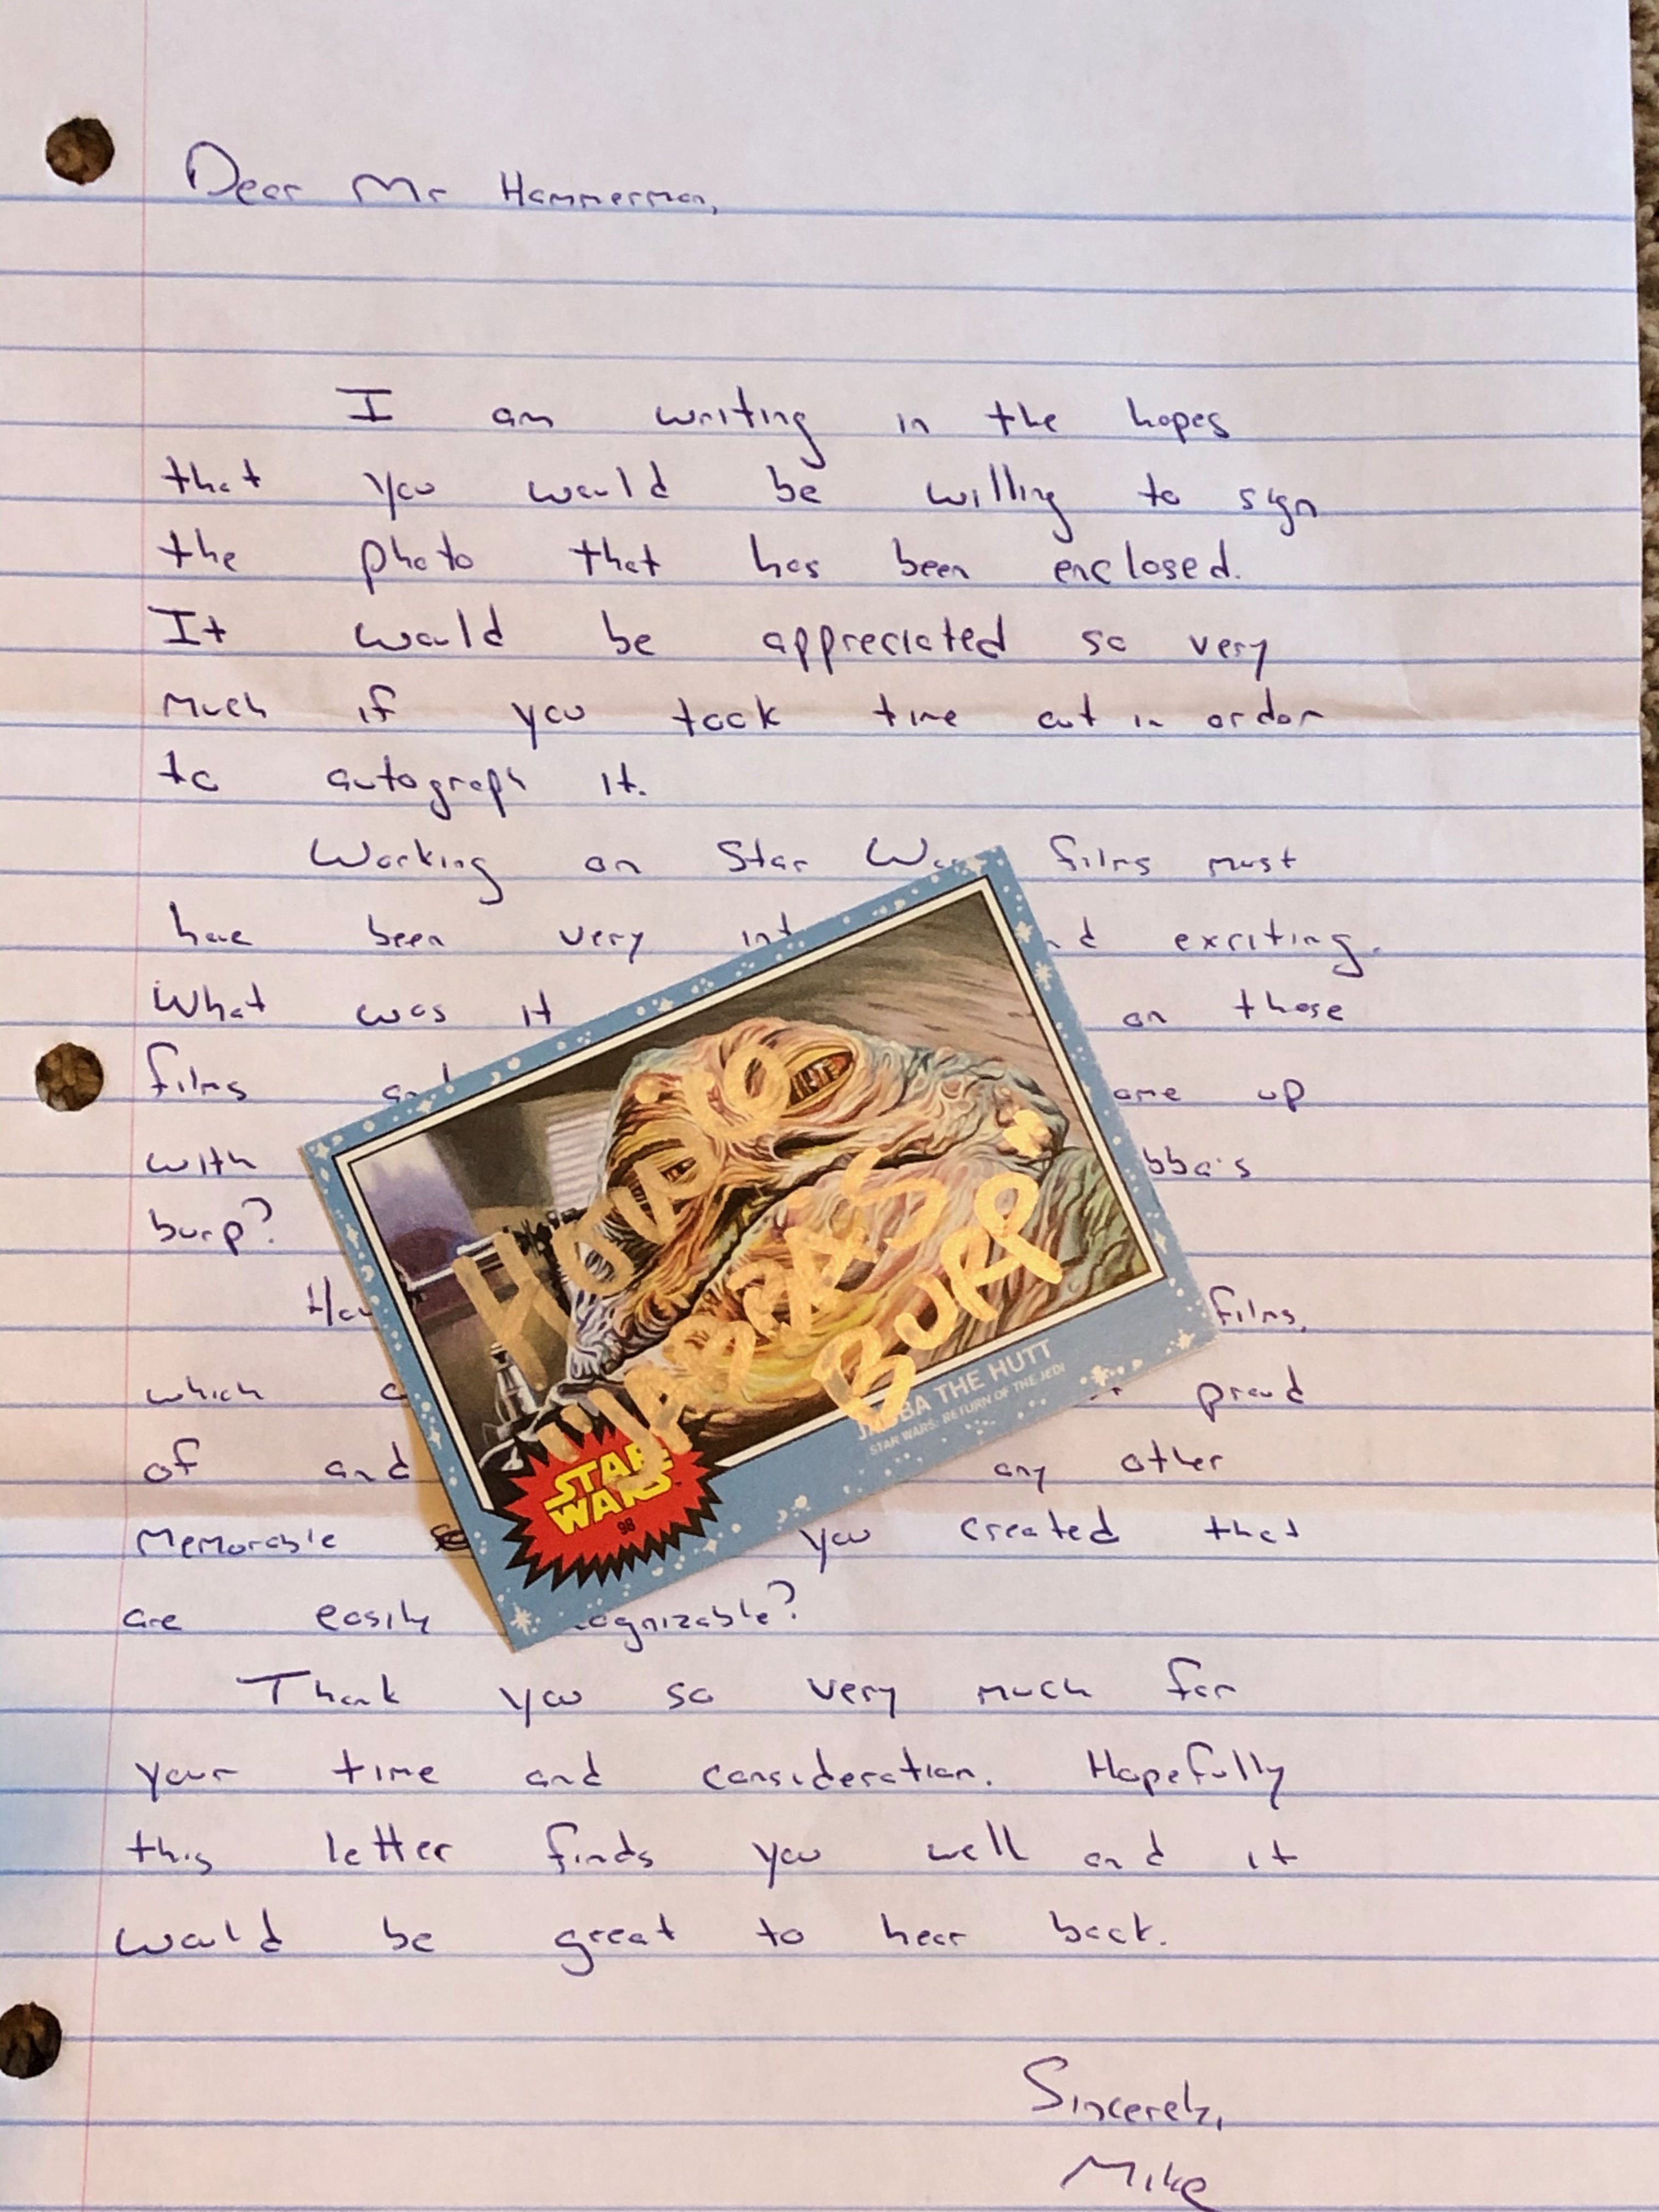 Dear Mr Hammerman,
I am writing in the hopes
that you would be willing to sign
the photo that has been enclosed.
It would be appreciated so very
much if you took time out in order
to autograph it.
Working on Star films must
have been very exciting.
What was it on those
films up
with
burp?
films,
which proud
of and any other
memorable you created that
are easily
Thank you so very much for
your time and consideration. Hopefully
this letter finds you well and it
would be great to hear back.
Sincerely,
Mike
"JABBA'S
BURP
JABBA THE HUTT
STAR WARS: RETURN OF THE JEDI
STAR
WARS
98